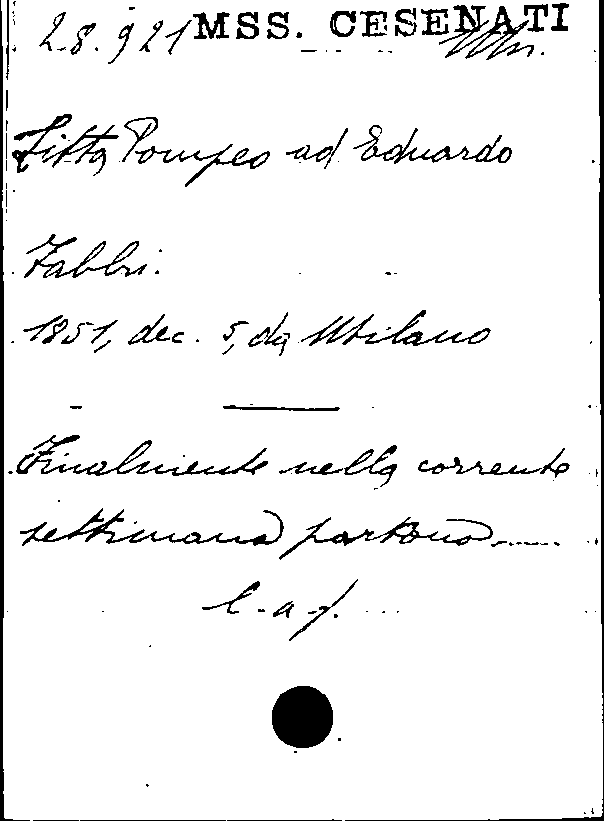 28.921 MSS. CESENATI
Litta Pompeo ad Eduardo
Fabbri.
1851, dec. 5, da Milano
Finalmente nella corrente
settimana partono......
l-a-f.